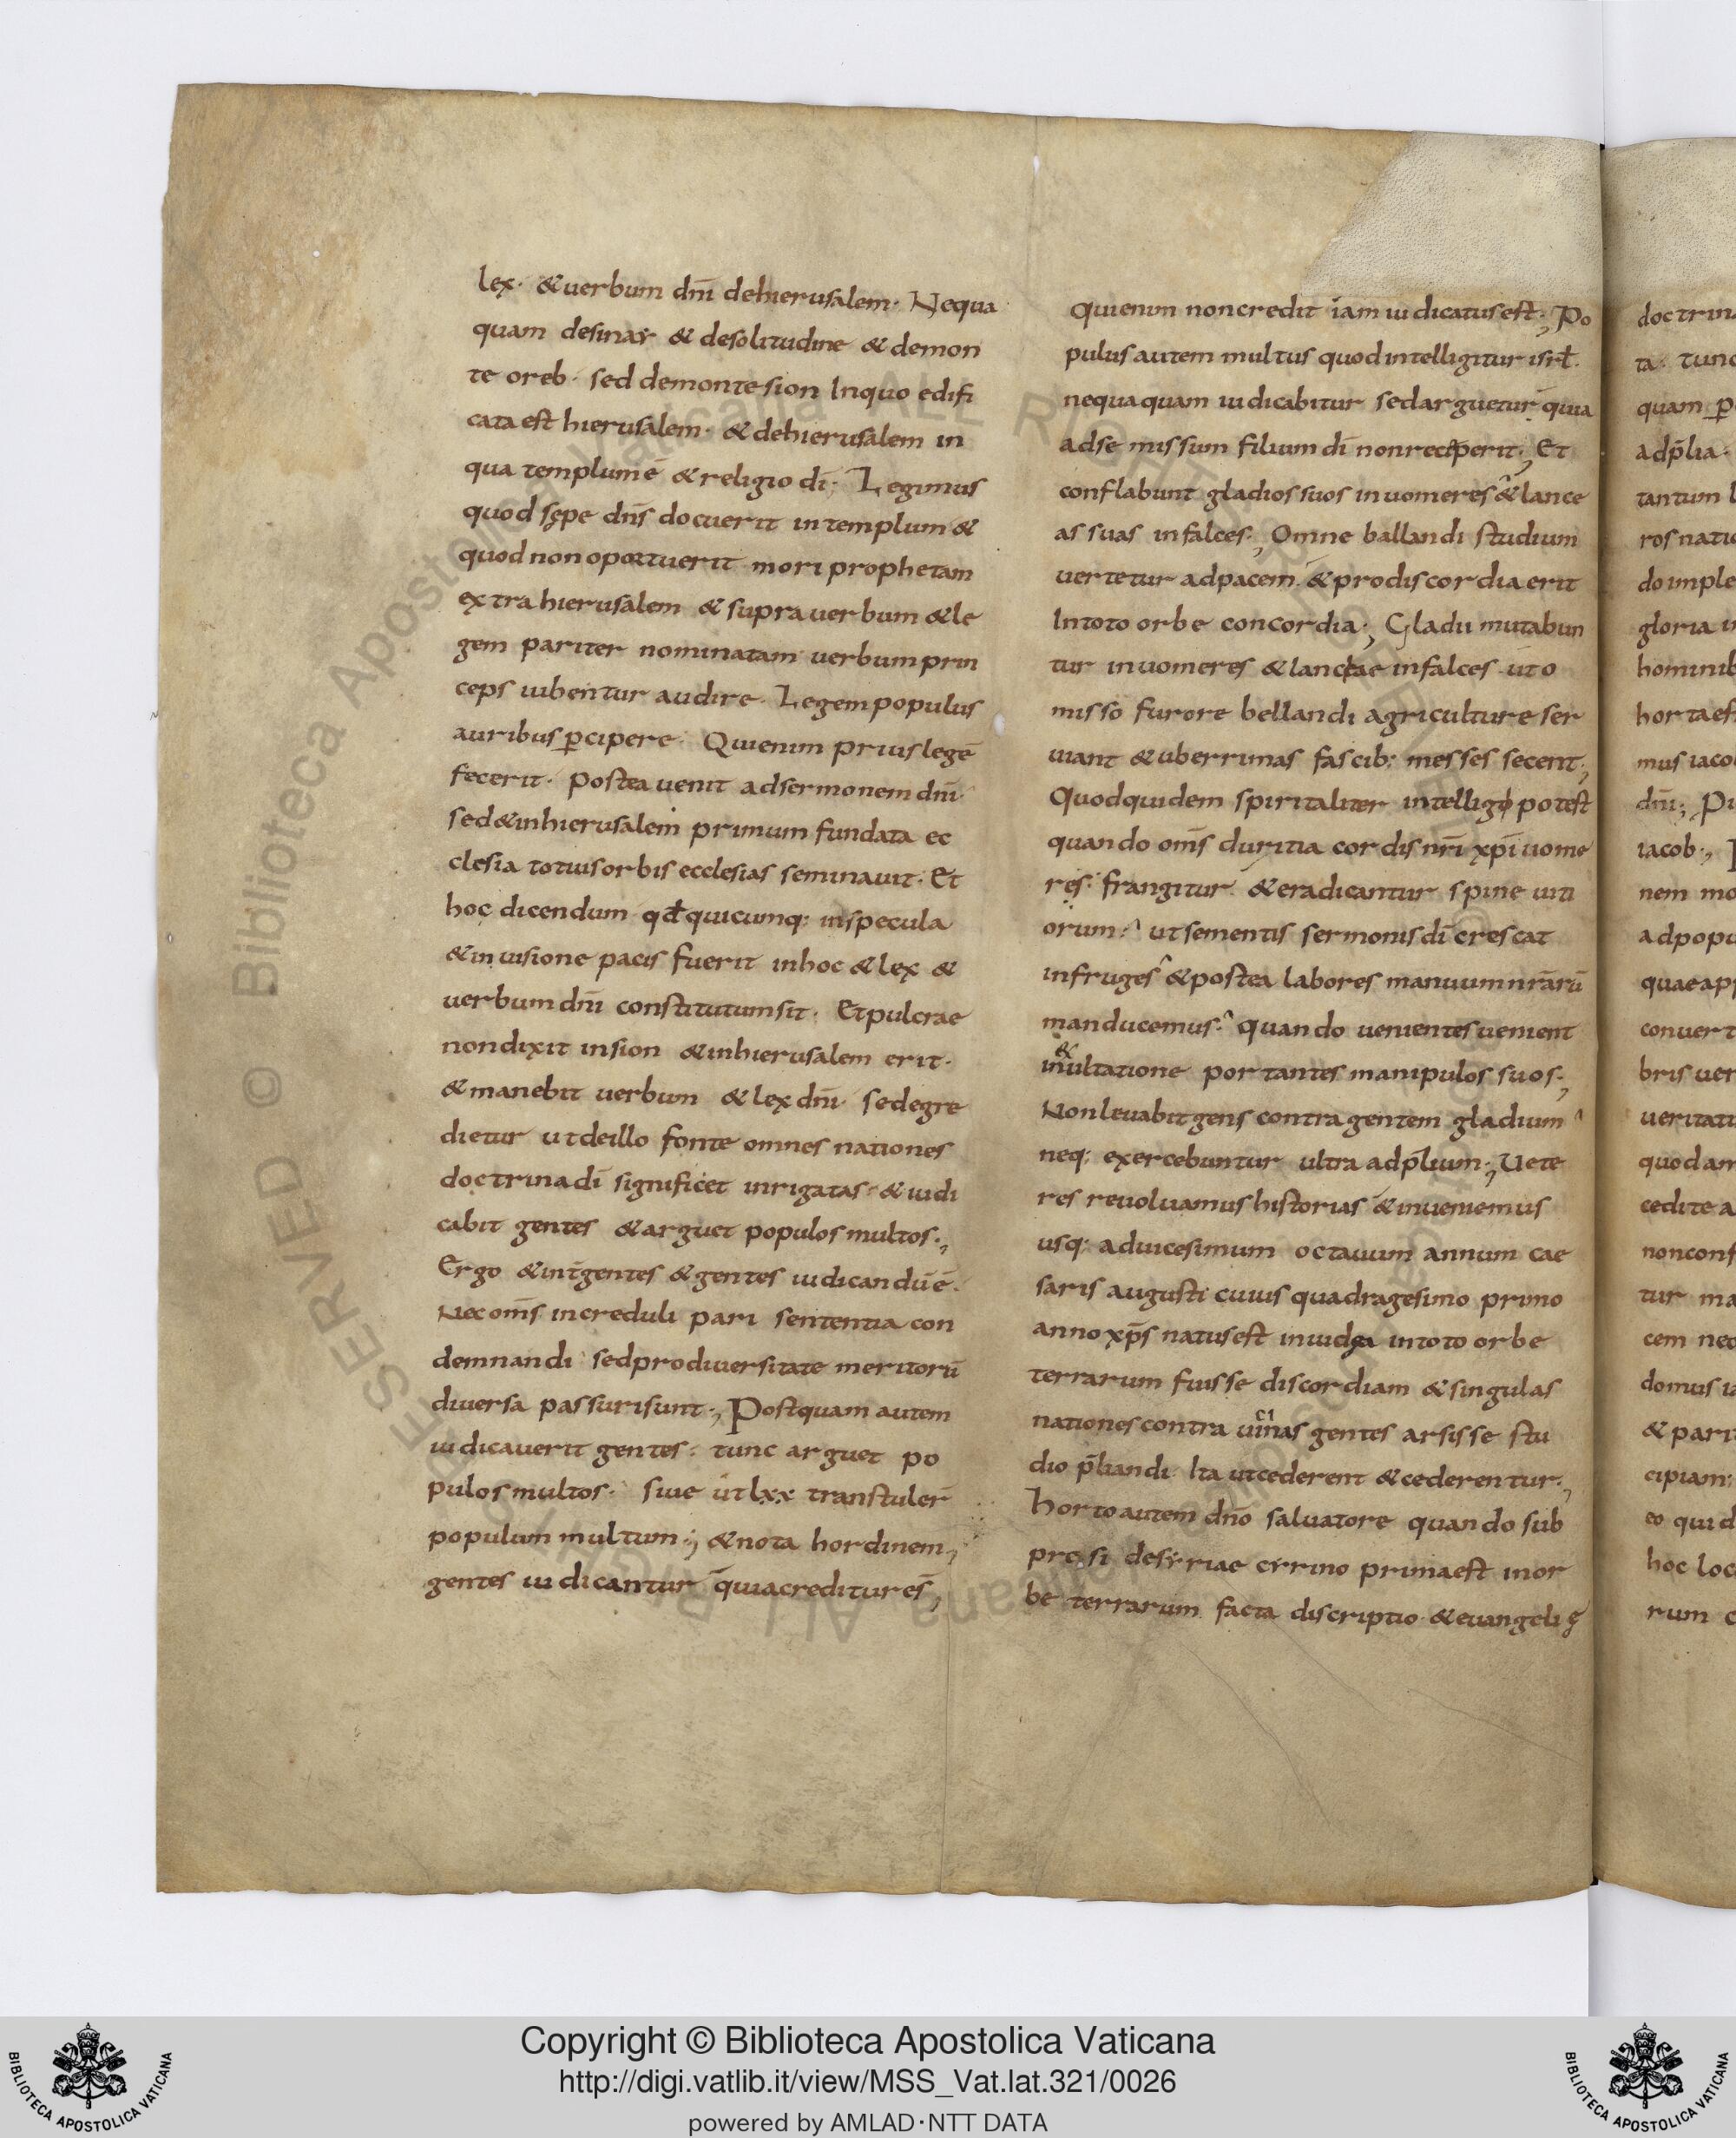 lex · & uerbum dnī de hierusalem · Nequa
quam desinaȳ & desolitudine & demon
te oreb · sed demonte sion Inquo edifi
cata est hierusalem · & dehierusalem in
qua templum ē & religio dī ; Legimus
quod sępe dns̄ docuerit in templum &
quod non oportuerit mori prophetam
extra hierusalem & supra uerbum & le
gem pariter nominatam uerbum prin
ceps iubentur audire · Legem populus
auribus p̱cipere · Qui enim prius legē
fecerit · postea uenit ad sermonem dnī ·
sed & inhierusalem primum fundata ec
clesia totius orbis ecclesias seminauit · Et
hoc dicendum qđ quicumq: inspecula
& in uisione pacis fuerit inhoc & lex &
uerbum dnī constitutum sit · Et pulcrae
non dixit insion & inhierusalem erit ·
& manebit uerbum & lex dnī · sed egre
dietur ut deillo fonte omnes nationes
doctrina dī significet inrigatas · & iudi
cabit gentes & arguet populos multos ·,
Ergo & int̄ gentes & gentes iudicandū ē ·
Nec oms̄ increduli pari sententia con
demnandi sed pro diuersitate meritorū
diuersa passuri sunt ·, Postquam autem
iudicauerit gentes · tunc arguet po
pulos multos · siue ut lxx transtuler̄
populum multum ·; & nota hordinem ,
gentes iudicantur q̄uia creditur es̄ ,
Qui enim non credit iam iudicatus est ·, Po
pulus autem multus quod intelligitur isrł ·
nequaquam iudicabitur sed arguetur q̄uia
adse missum filium dī non reciperit ·, Et
conflabunt gladios suos in uomeres & lance
as suas in falces ·, Omne ballandi studium
uertetur ad pacem · & pro discordia erit
Intoto orbe concordia ·, Gladii mutabun
tur in uomeres & lanceae in falces · ut o
misso furore bellandi agriculture ser
uiant & uberrimas fascib: messes secent ·,
Quod quidem spiritaliter intelligi potest
quando oms̄ duritia cordis nrī xpī uome
res · frangitur & eradicantur spine uiti
orum · ut sementis sermonis dī crescat
in fruges & postea labores manuum nrārū
manducemus · quando uenientes uenient
in exultatione portantes manipulos suos ·,
Non leuabit gens contra gentem gladium
neq: exercebuntur ultra ad p̄lium ·, Uete
res reuoluamus historias & inueniemus
usq: ad uicesimum octauum annum cae
saris augusti cuius quadragesimo primo
anno xps̄ natus est in iudea in toto orbe
terrarum fuisse discordiam & singulas
nationes contra uicinas gentes arsisse stu
dio p̄liandi · Ita ut cederent & cederentur ·,
Horto autem dnō saluatore quando sub
pręsi desyriae cyrino prima est in or
be terrarum facta discriptio & euangelię
ta · tunc
quam p̱
ad p̄lia ·
tantum
ros natio
do imple
gloria in
hominib
horta est
mus iacob
dnī ;
iacob ·,
nem mo
ad popu
quae
conuert
bris uer
ueritati
quod am
cedite a
non cons
tur ma
cem nec
domus
& pari
cipiam
eo qui d
hoc loc
rum
Copyright © Biblioteca Apostolica Vaticana
http://digi.vatlib.it/view/MSS_Vat.lat.321/0026
powered by AMLAD·NTT DATA
BIBLIOTECA APOSTOLICA VATICANA
BIBLIOTECA APOSTOLICA VATICANA